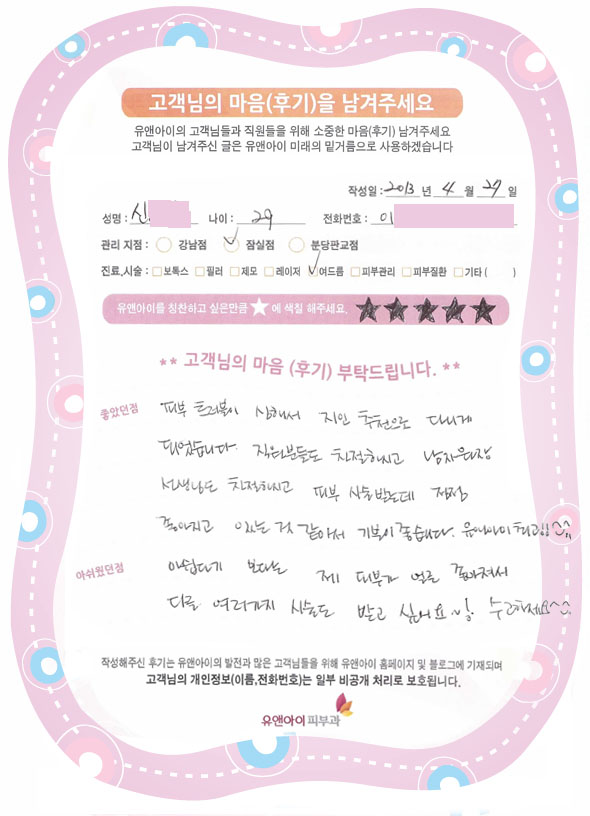 고객님의 마음(후기)을 남겨주세요
유앤아이의 고객님들과 직원들을 위해 소중한 마음(후기) 남겨주세요
고객님이 남겨주신 글은 유앤아이 미래의 밑거름으로 사용하겠습니다
작성일 : 2013 년 4 월 27 일
성명 : 신 나이 : 29 전화번호 : 01
관리 지점 : 강남점 잠실점 분당판교점
진료,시술 : 보톡스 필러 제모 레이저 여드름 피부관리 피부질환 기타 ( )
유앤아이를 칭찬하고 싶은만큼 ★ 에 색칠 해주세요. ★★★★★
** 고객님의 마음 (후기) 부탁드립니다. **
좋았던점 피부 트러블이 심해서 지인 추천으로 다니게
되었습니다. 직원분들도 친절하시고 남자원장
선생님도 친절하시고 피부 시술받는데 점점
좋아지고 있는 것 같아서 기분이 좋습니다. 유앤아이 최고!! ^^
아쉬웠던점 아쉽다기 보다는 제 피부가 얼른 좋아져서
다른 여러가지 시술도 받고 싶어요 수고하세요~^^
작성해주신 후기는 유앤아이의 발전과 많은 고객님들을 위해 유앤아이 홈페이지 및 블로그에 기재되며
고객님의 개인정보(이름,전화번호)는 일부 비공개 처리로 보호됩니다.
유앤아이피부과